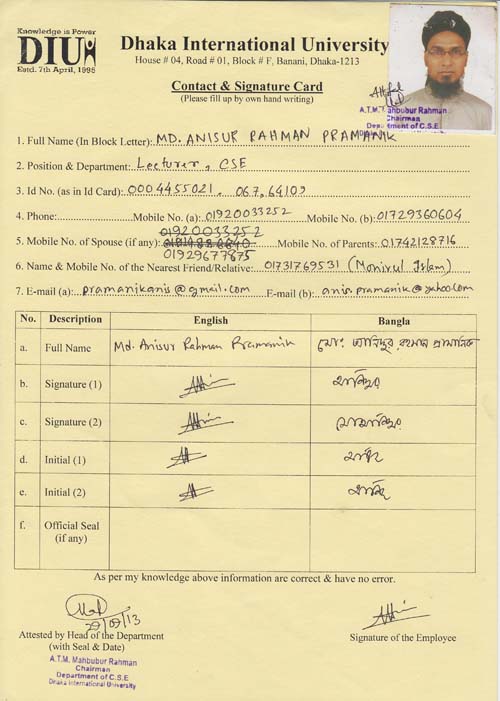 Knowledge is Power
DIU
Estd. 7th April, 1995
Dhaka International University
House # 04, Road # 01, Block # F, Banani, Dhaka-1213
Contact & Signature Card
(Please fill up by own hand writing)
A.T.M. Mahbubur Rahman
Chairman
Department of C.S.E
1. Full Name (In Block Letter): MD. ANISUR RAHMAN PRAMANIK
2. Position & Department: Lecturer, CSE
3. Id No. (as in Id Card): 0004455021, 067,64109
4. Phone: Mobile No. (a): 01920033252 Mobile No. (b): 01729360604
01920033252
5. Mobile No. of Spouse (if any): Mobile No. of Parents: 01742128716
01929677875
6. Name & Mobile No. of the Nearest Friend/Relative: 01731769531 (Monirul Islam)
7. E-mail (a): pramanikanis@gmail.com E-mail (b): anis.pramanik@yahoo.com
No. Description English Bangla
a. Full Name Md. Anisur Rahman Pramanik মোঃ আনিছুর রহমান প্রামানিক
b. Signature (1)
c. Signature (2)
d. Initial (1)
e. Initial (2)
f. Official Seal
(if any)
As per my knowledge above information are correct & have no error.
29/09/13
Attested by Head of the Department
(with Seal & Date)
Signature of the Employee
A.T.M. Mahbubur Rahman
Chairman
Department of C.S.E
Dhaka International University